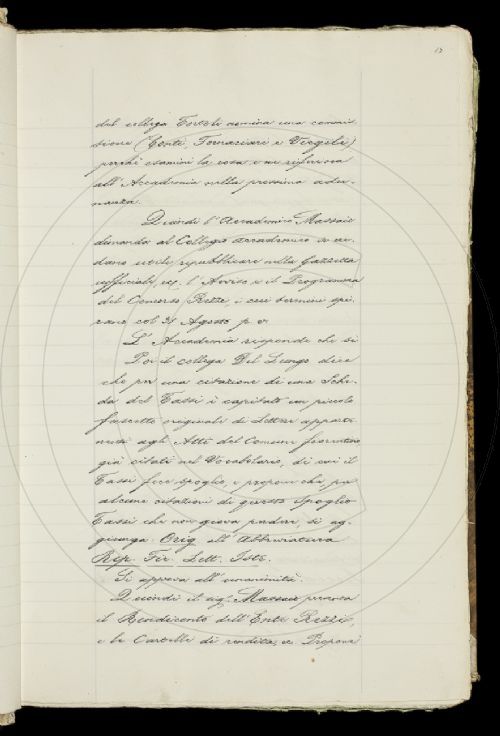 del collega Tortoli nomina una commis
sione (Conti, Fornaciari e Vergili)
perchè esamini la cosa e ne riferisca
all'Accademia nella prossima adu-
nanza.
Quindi l'Accademico Massaio
domanda al Collegio accademico se cre-
dano utile ripubblicare nella Gazzetta
ufficiale l'Avviso e il Programma
del Concorso Rezzi, i cui termini spi-
rano col 31 Agosto p. v.
L'Accademia risponde che sì.
Poi il collega Del Lungo dice
che per una citazione di una Sche-
da del Tassi è capitato un piccolo
fascetto originale di Lettere apparte-
nenti agli Atti del Comune fiorentino
già citati nel Vocabolario, di cui il
Tassi fece spoglio, e propone che, per
alcune citazioni di questo spoglio
Tassi che non giova perdere, si ag-
giunga Orig. all'Abbreviatura
Rep. Fir. Lett. Istr.
Si approva all'unanimità.
Quindi il sig. Massaio presenta
il Rendiconto dell'Ente Rezzi,
e le Cartelle di rendita, e Propone